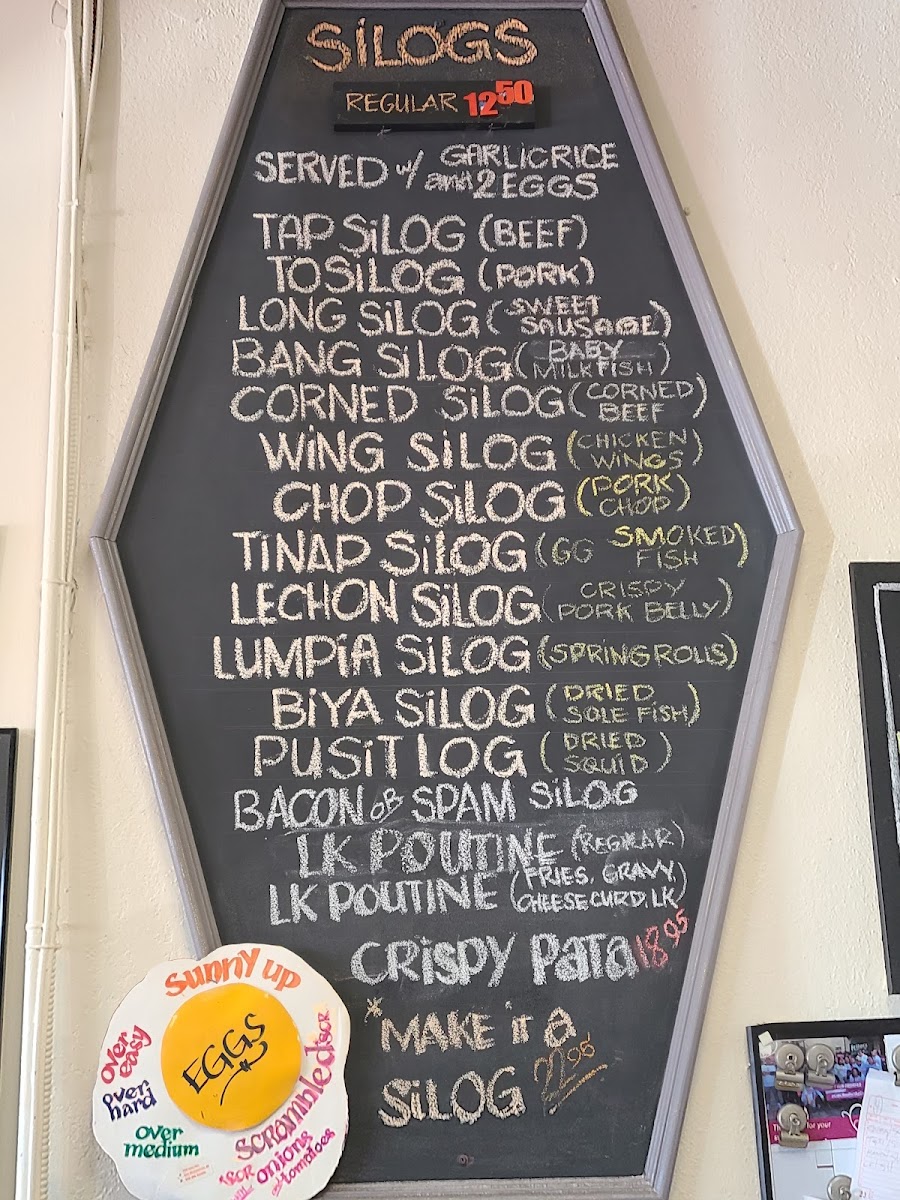 SiLOGS
REGULAR 12 50
SERVED w/ GARLIC RICE
and 2 EGGS
TAP SiLOG (BEEF)
TOSiLOG (PORK)
LONG SiLOG (SWEET SAUSAGE)
BANG SiLOG (BABY MILKFISH)
CORNED SiLOG (CORNED BEEF)
WiNG SiLOG (CHICKEN WINGS)
CHOP SiLOG (PORK CHOP)
TiNAP SiLOG (GG SMOKED FISH)
LECHON SiLOG (CRISPY PORK BELLY)
LUMPiA SiLOG (SPRING ROLLS)
BiYA SiLOG (DRIED SOLE FISH)
PUSiT LOG (DRIED SQUID)
BACON OR SPAM SiLOG
LK POUTINE (REGULAR)
LK POUTINE (FRIES, GRAVY, CHEESECURD, LK)
CRiSPY PaTa 18 95
*MAKE iT a
SiLOG 22 95
Sunny up
over easy
over hard
over medium
EGGS
SCRAMBLED
onions
and tomatoes